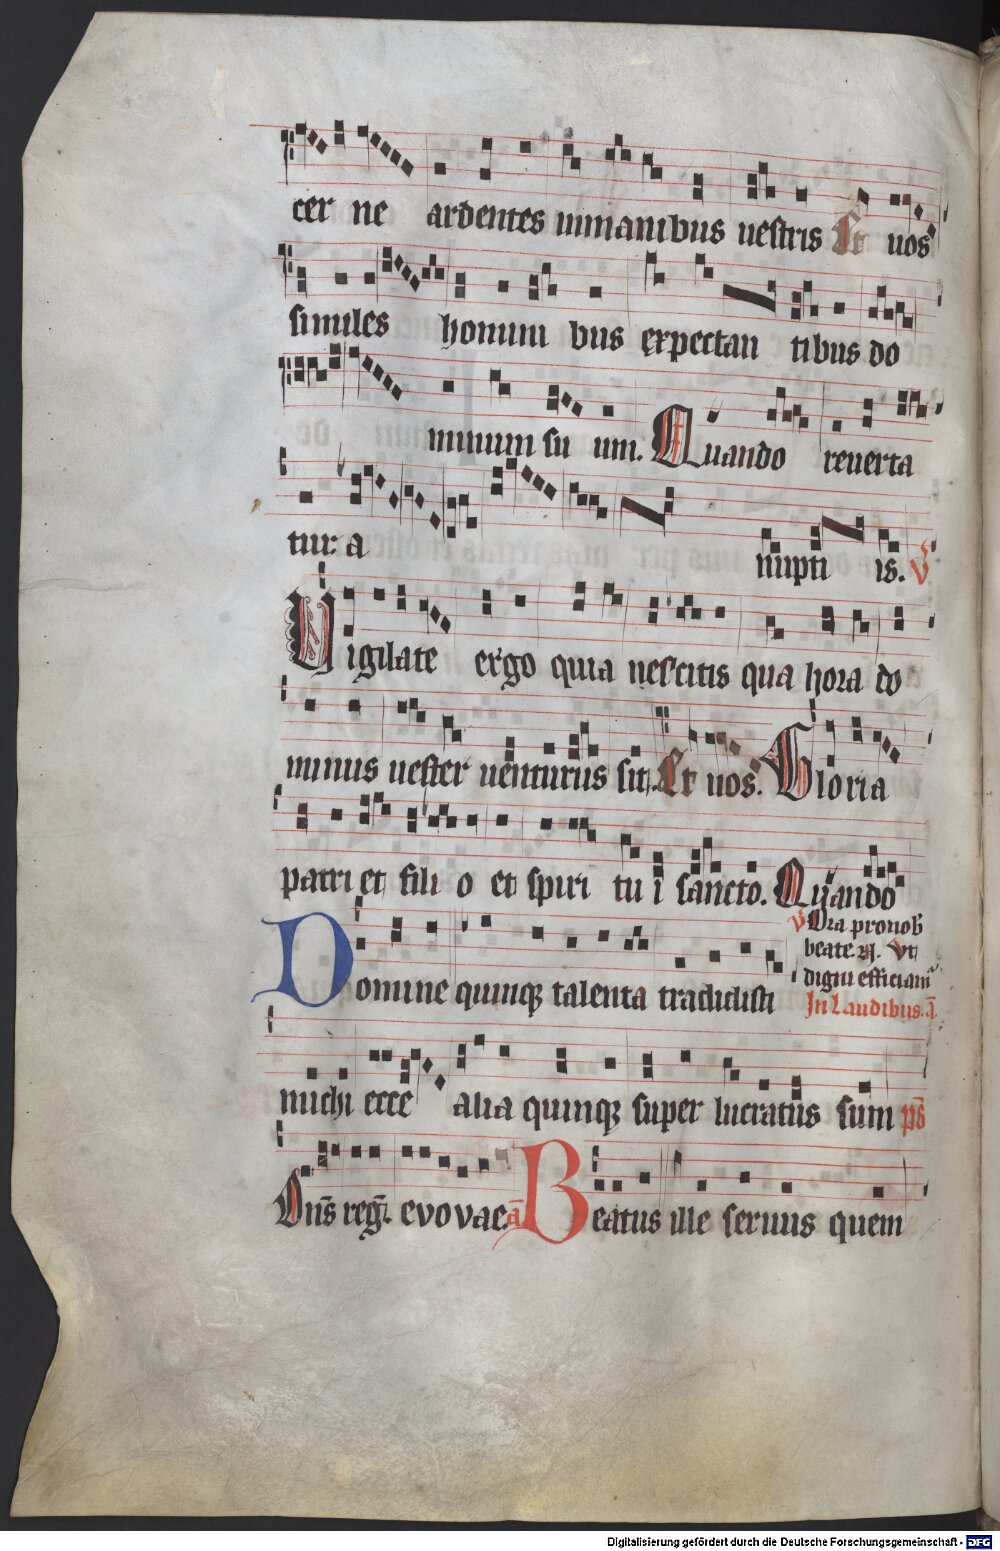 cer ne ardentes in manibus uestris Et uos
similes homini bus expectan tibus do
minum su um. Quando reuerta
tur a nupti is. V
Vigilate ergo quia nescitis qua hora do
minus uester uenturus sit. Et uos. Gloria
patri et fili o et spiri tu i sancto. Quando
V Ora pro nob
beate. Vt
digni efficiam
Domine quinqȝ talenta tradidisti
In Laudibus. a
michi ecce alia quinqȝ super lucratus sum ps
Dns reg. evovae. a Beatus ille seruus quem
Digitalisierung gefördert durch die Deutsche Forschungsgemeinschaft - DFG